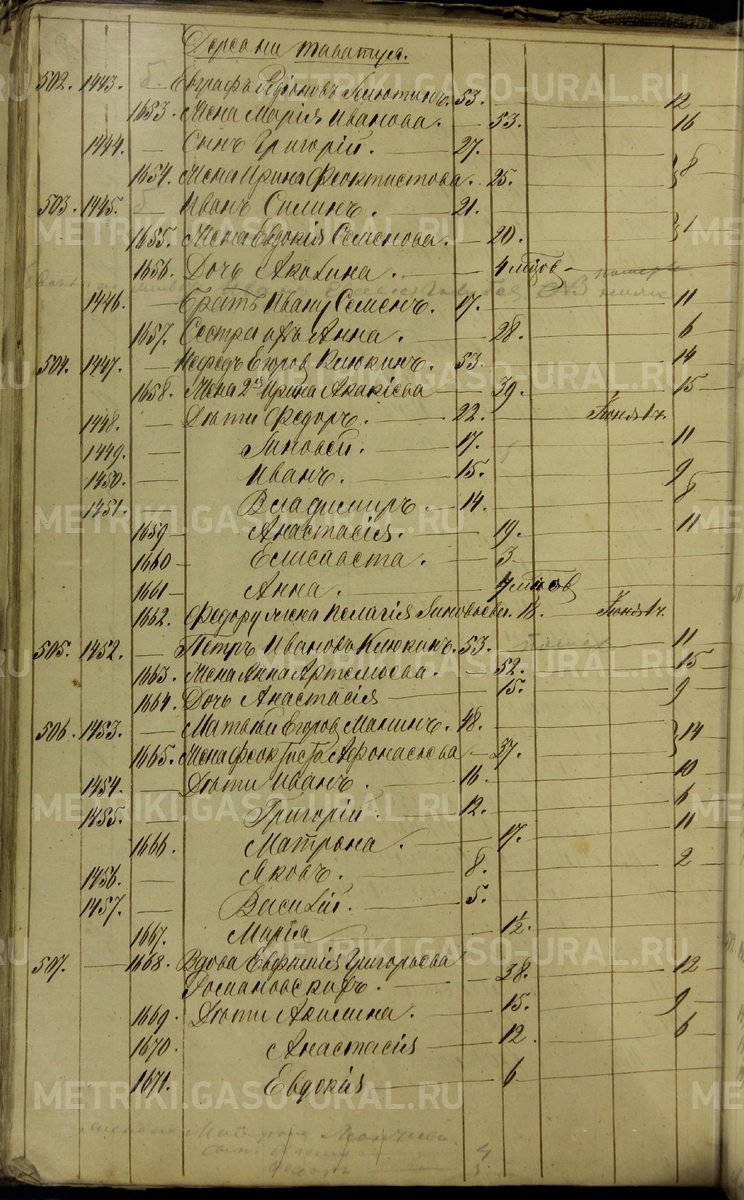 Деревни Таватуя.
502. 1443. Евграфъ Родіоновъ 53. 12
1653. Жена Марія Иванова. 53. 16
1444. Сынъ Григорій. 27.
1654. Жена Ирина Феоктистова. 25. } 8
503. 1445. Иванъ Силинъ. 21.
1655. Жена Евдокія Семенова. 20. } 1
1656. Дочь Акулина. 4 мѣсов
1446. Братъ Ивану Семенъ. 17. 11
1657. Сестра ихъ Анна. 28. 6
504. 1447. Нефедъ Егоров Клюкинъ. 53. 14
1658. Жена 2я Ирина Акакіева 39. 15
1448. Дѣти Федоръ. 22.
1449. Зиновей. 17. 11
1450. Иванъ. 15. 9
1451. Владимиръ. 14. 8
1659 Анастасія. 19. 11
1660 Елисавета. 3
1661 Анна. 7 мѣсов
1662. Федору жена Пелагія Зиновьева. 18.
505. 1452. Петръ Ивановъ Клюкинъ. 53. 11
1663. Жена Анна Артемьева. 52. 15
1664. Дочь Анастасія 15. 9
506. 1453. Матвей Егоров Манинъ. 48.
1665. Жена Феоктиста Афонасьева 37. } 14
1454. Дѣти Иванъ. 16. 10
1455. Григорій. 12. 6
1666. Матрона. 17. 11
1456. Яковъ. 8. 2
1457. Василій. 5.
1667. Марія 1½.
507. 1668. Вдова Евфимія Григорьева 38. 12
Романовскихъ.
1669. Дѣти Акилина. 15. 9
1670. Анастасія 12. 6
1671. Евдокія 6
METRIKI.GASO-URAL.RU